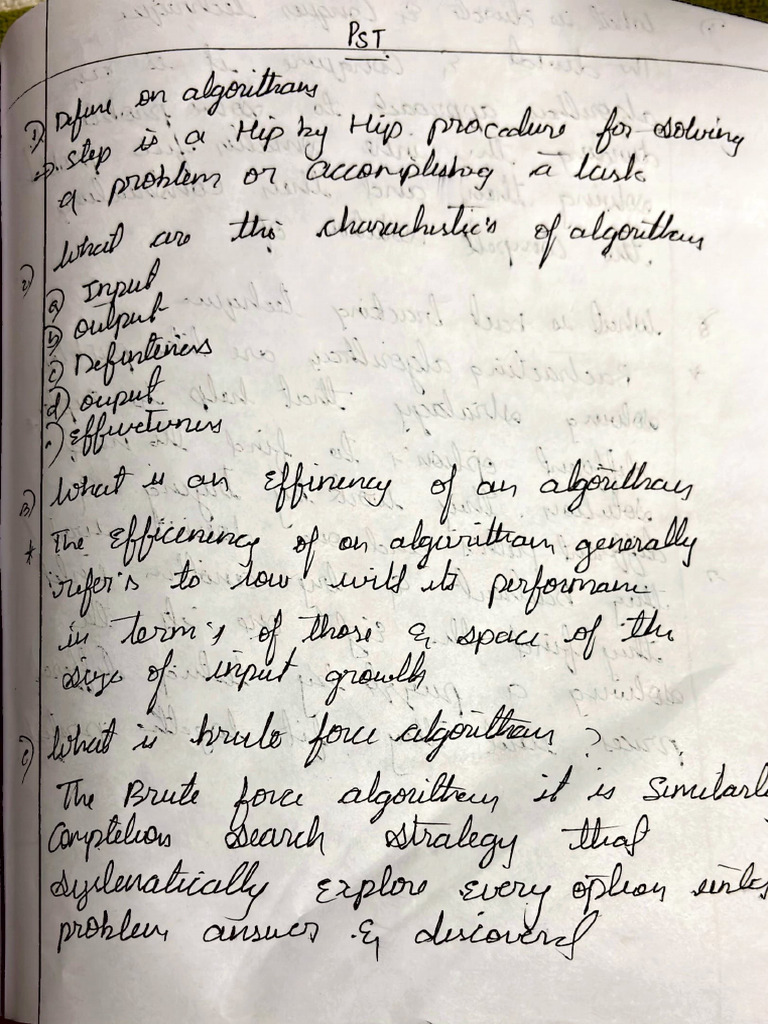 PST
1) Define on algorithams
→ step is a Hip by Hip procedure for solving
a problem or accomplishing a task
2) What are the charachestic's of algoritham
a) Input
b) output
c) Definteness
d) ouput
e) Effectivness
3) What is an Effinency of an algoritham
* The Efficinency of on algoritham generally
refer's to low with its performanc
in term's of those & space of the
size of input growth
What is brute force algoritham ?
The Brute force algoritham it is Similarl
Comptelion search strategy that
systenatically explore every option
problem answer & discovered